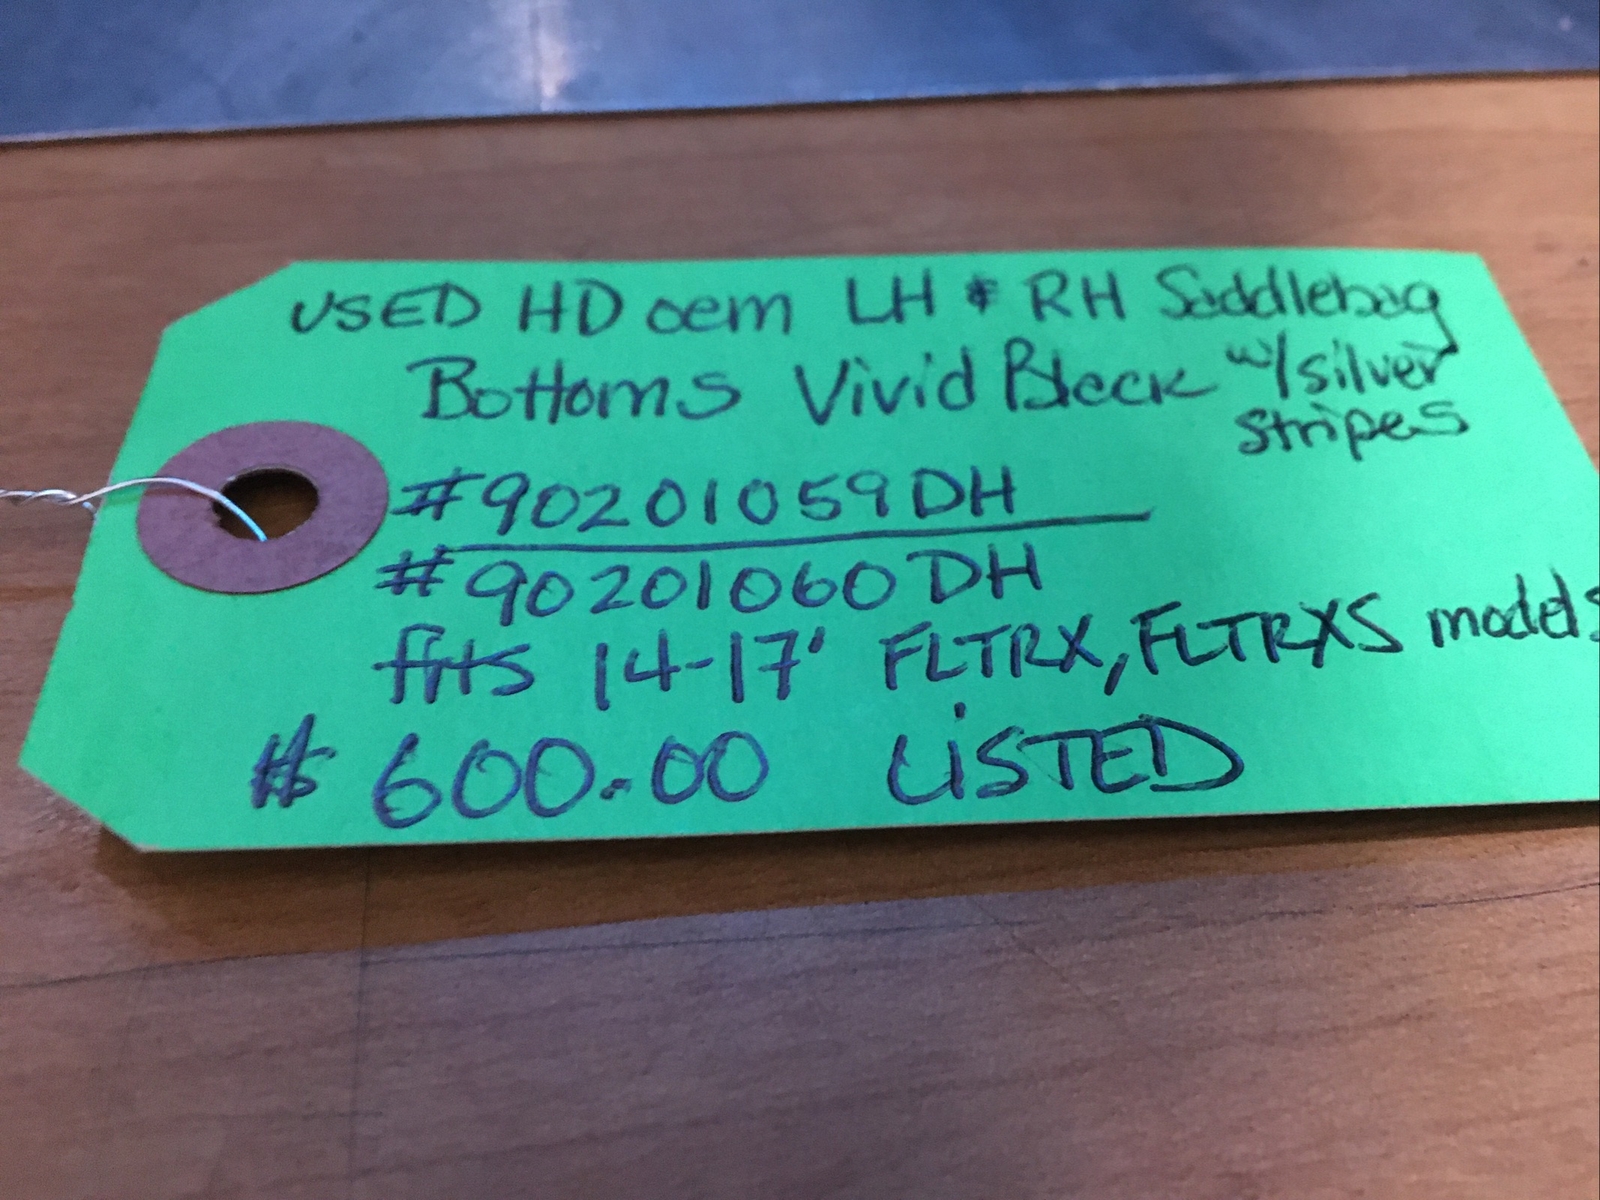 USED HD oem LH & RH Saddlebag
Bottoms Vivid Black w/silver
stripes
#90201059DH
#90201060DH
fits 14-17' FLTRX, FLTRXS models
$ 600.00 LiSTED